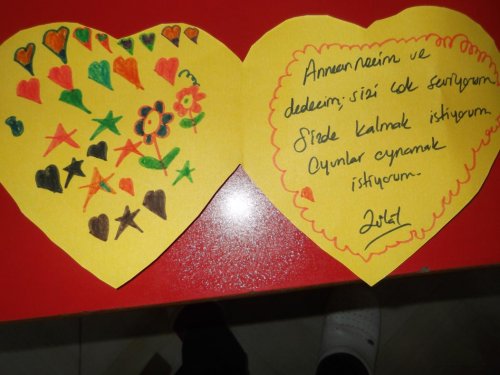 Anneannecim ve
dedecim, sizi çok seviyorum
Sizde kalmak istiyorum
Oyunlar oynamak
istiyorum.